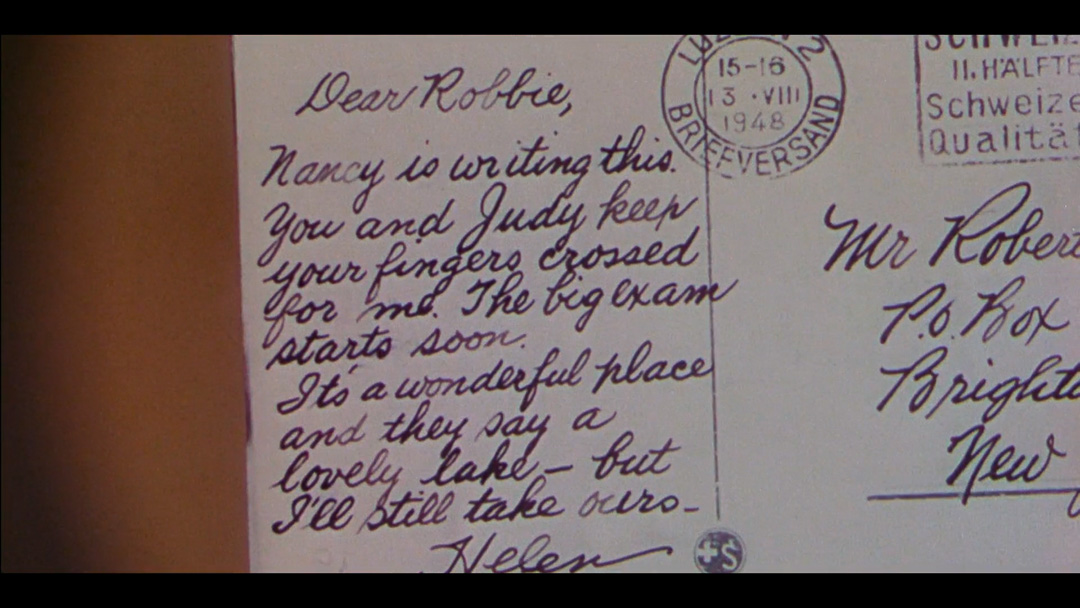 Dear Robbie,
Nancy is writing this.
You and Judy keep
your fingers crossed
for me. The big exam
starts soon.
It's a wonderful place
and they say a
lovely lake – but
I'll still take ours –
Helen
2
15-16
13 ·VIII
1948
BRIEFVERSAND
II. HÄLFTE
Mr Robert
P.O. Box
New
+S